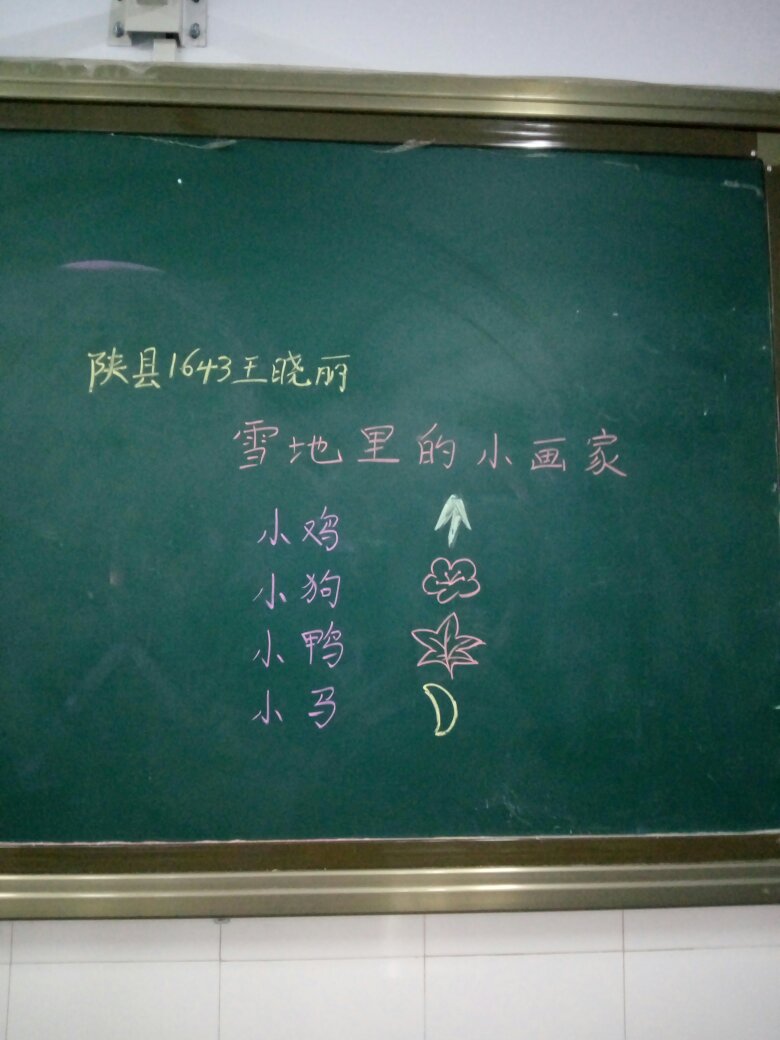 陕县1643王晓丽
雪地里的小画家
小鸡
小狗
小鸭
小马